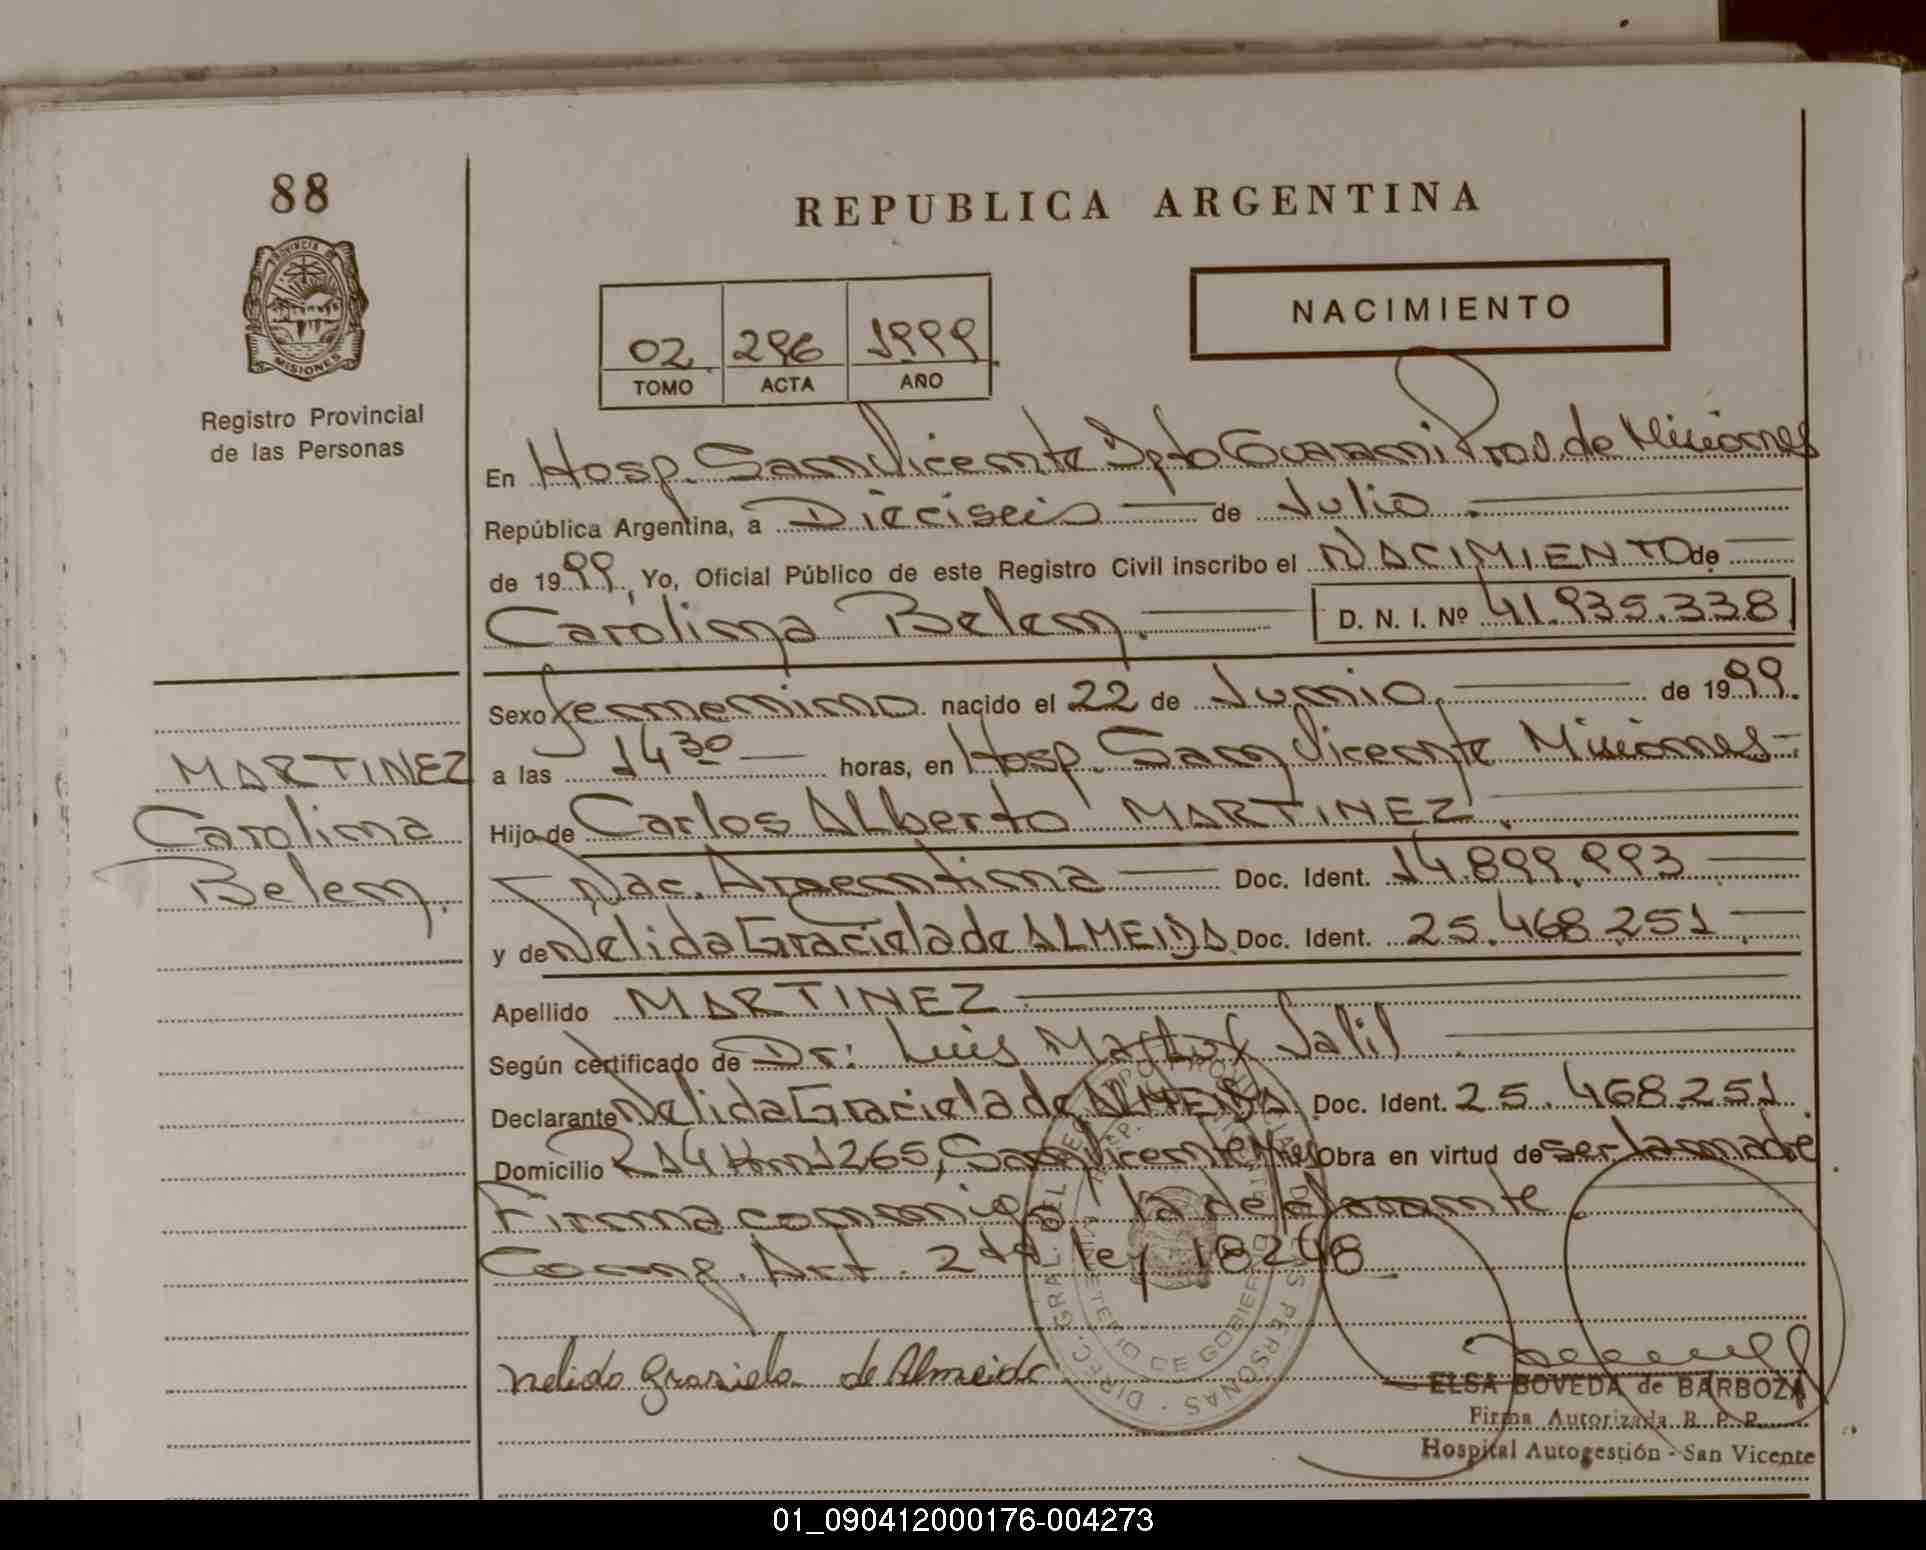 88
REPUBLICA ARGENTINA
PROVINCIA DE
MISIONES
Registro Provincial
de las Personas
02 296 1999
TOMO ACTA AÑO
NACIMIENTO
En Hosp. San Vicente Dpto Guarani Prov. de Misiones
República Argentina, a Dieciseis de Julio.
de 1999, Yo, Oficial Público de este Registro Civil inscribo el NACIMIENTO de
Carolina Belen. D. N. I. Nº 41.935.338
Sexo femenino nacido el 22 de Junio, de 1999.
a las 14 30 horas, en Hosp. San Vicente Misiones
MARTINEZ
Carolina
Belen.
Hijo de Carlos Alberto MARTINEZ.
Nac. Argentina Doc. Ident. 14.899.993
y de Nelida Graciela de ALMEIDA Doc. Ident. 25.468.251
Apellido MARTINEZ.
Según certificado de Dr: Luis Salil
Declarante Nelida Graciela de ALMEIDA Doc. Ident. 25.468.251
Domicilio R14 Km1265, San Vicente Obra en virtud de ser la madre
Firma conmigo la declarante.
Comp. Art. 2 ley 18248
Nelida Graciela de Almeida
DIREC. GRAL. DEL REG. PROVINCIAL DE LAS PERSONAS
DE GOBIERNO
ELSA BOVEDA de BARBOZA
Firma Autorizada R. P. P.
Hospital Autogestión - San Vicente
01_090412000176-004273